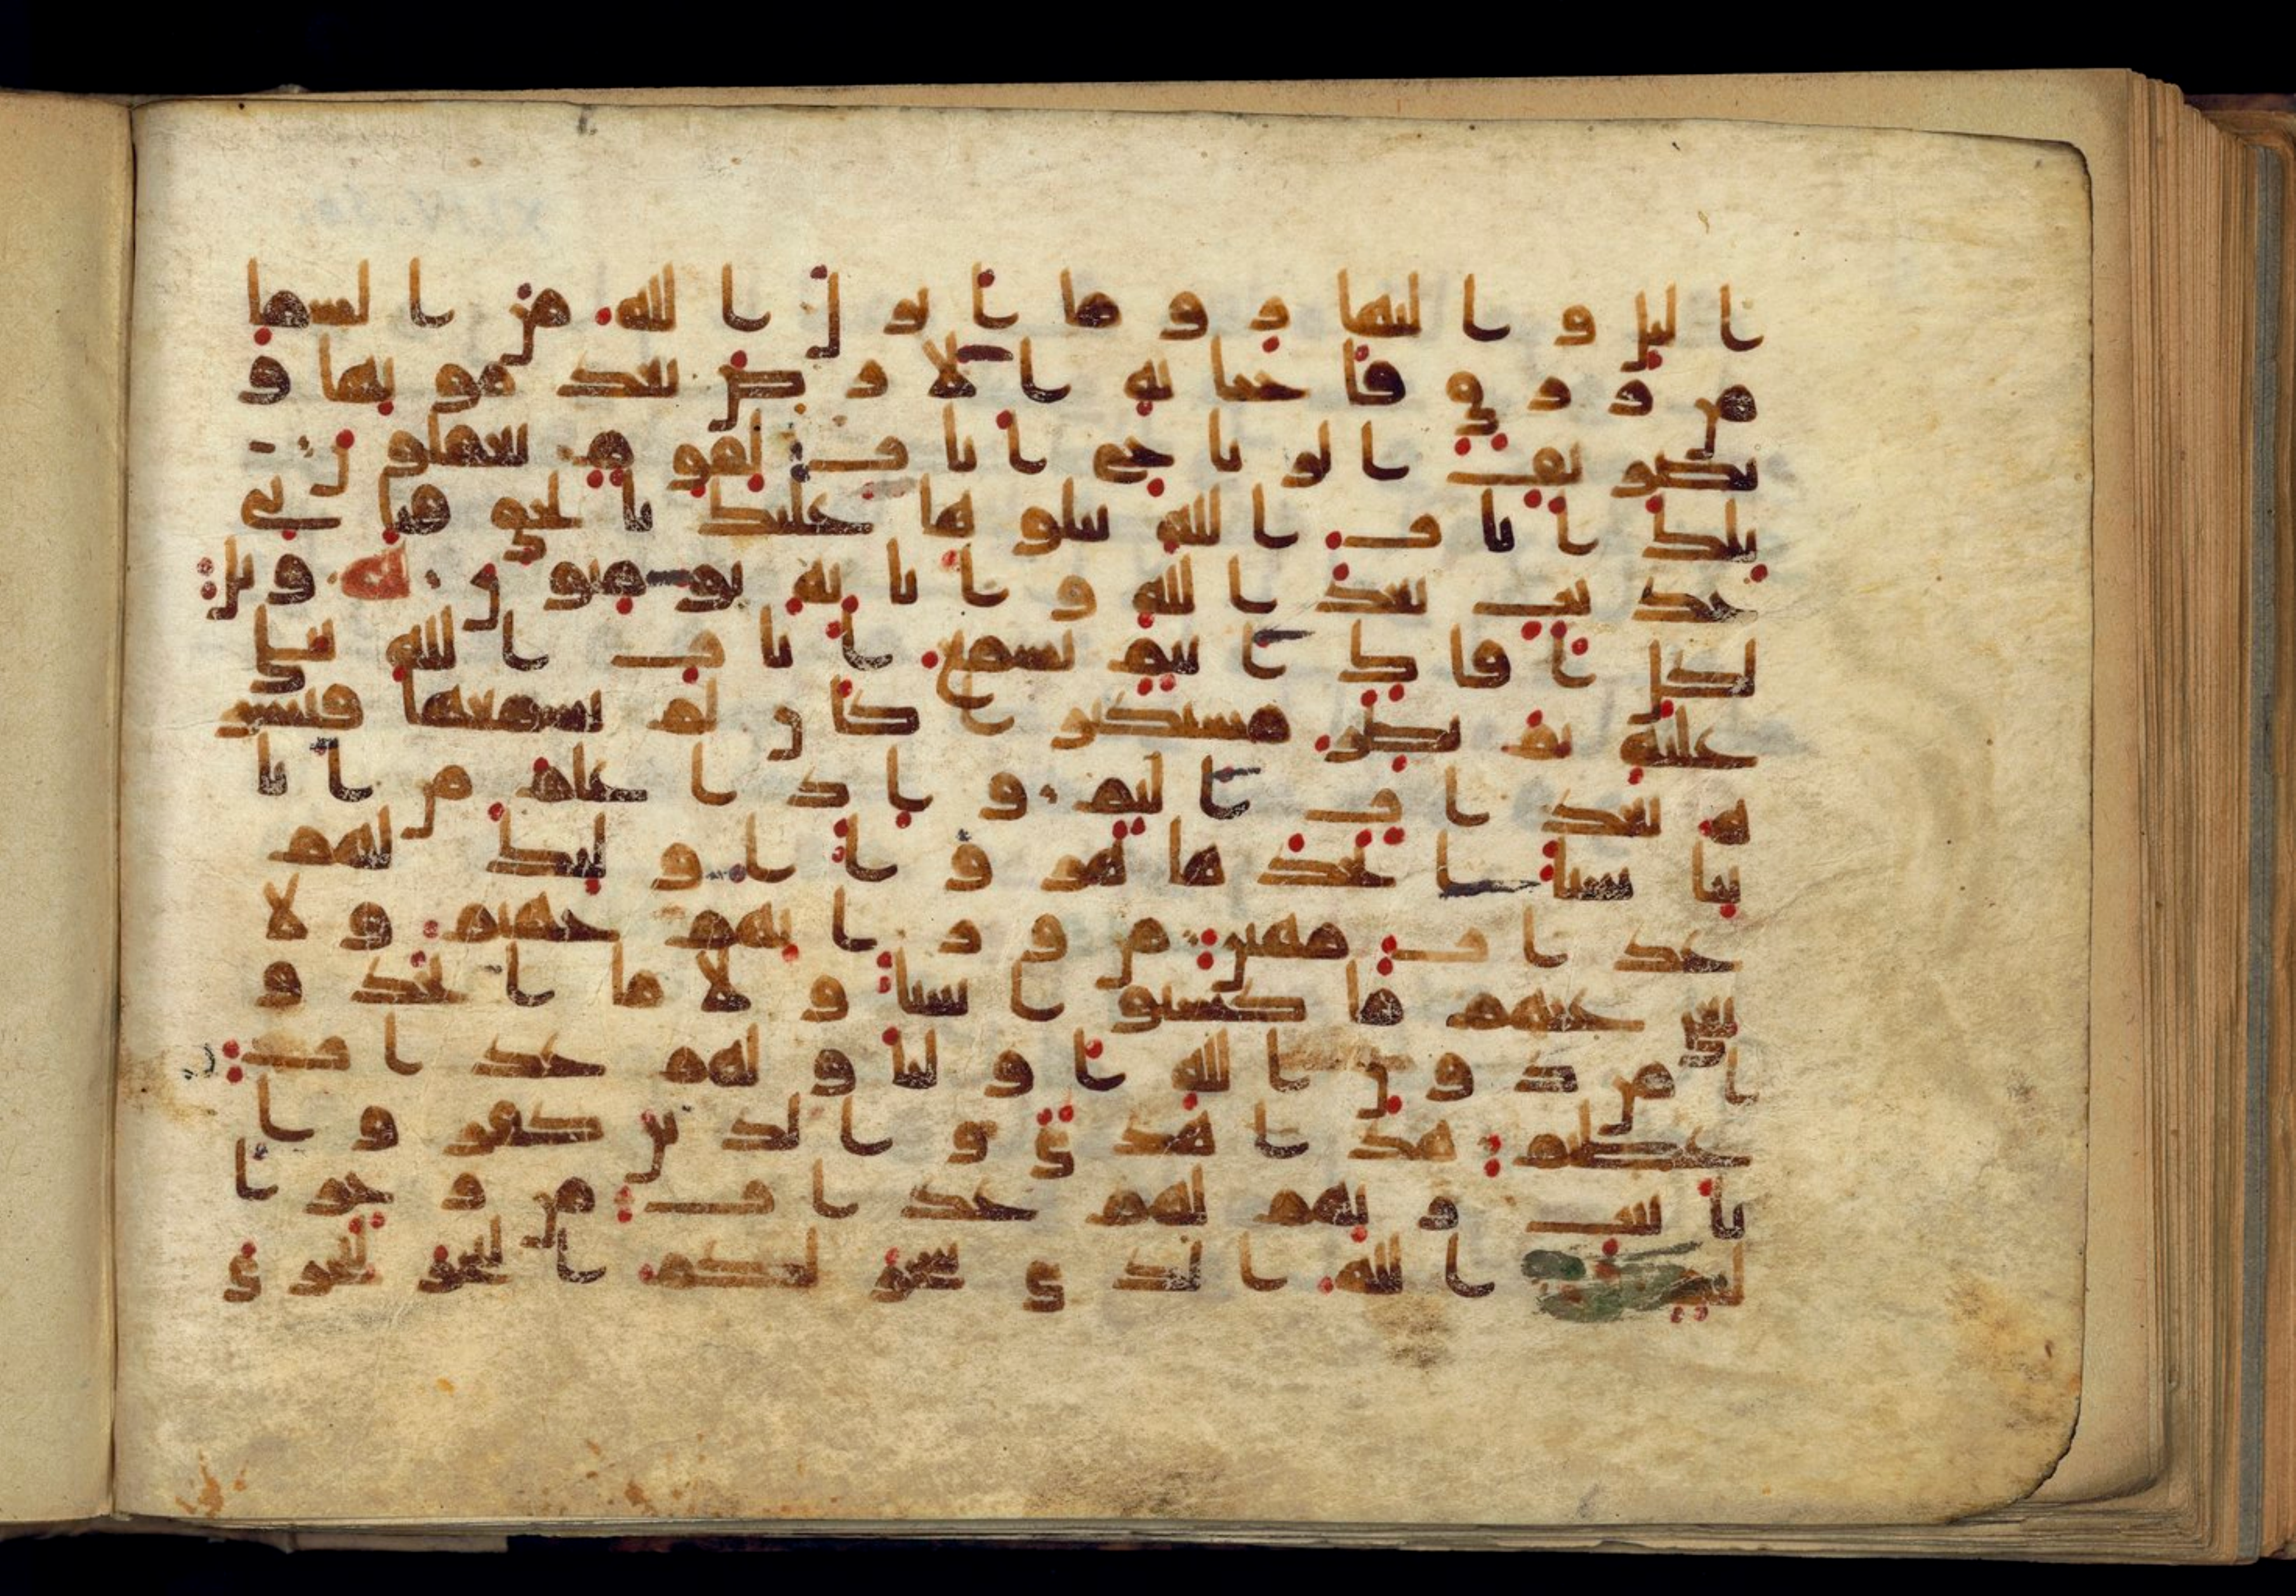 اليل والنهار وما انزل الله من السما
من رزق فاحيا به الارض بعد موتها و
تصريف الريح ايت لقوم يعقلون
تلك ايت الله نتلوها عليك بالحق فباي
حديث بعد الله وايته يومنون ويل
لكل افاك اثيم يسمع ايت الله تتلى
عليه ثم يصر مستكبرا كان لم يسمعها فبشر
ه بعذاب اليم واذا علم من ايا
تنا شيا اتخذها هزوا اوليك لهم
عذاب مهين من ورايهم جهنم ولا
يغني عنهم ما كسبوا شيا ولا ما اتخذو
ا من دون الله اوليا ولهم عذاب
عظيم هذا هدى والذين كفروا
بايت ربهم لهم عذاب من رجز ا
ليم الله الذي سخر لكم البحر لتجري